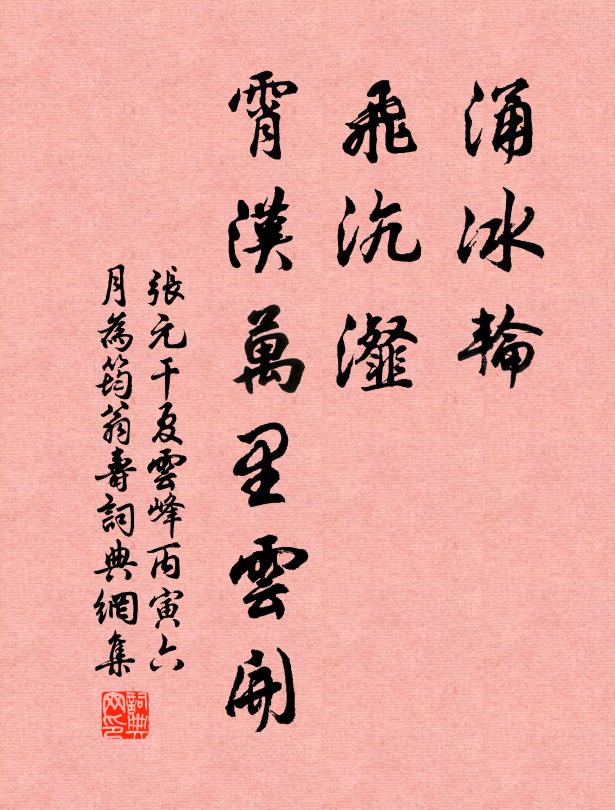 涌冰輪
飛沆瀣
霄漢萬里雲開
張元干夏雲峰丙寅六
月為筠翁壽詞典網集
詞典网印